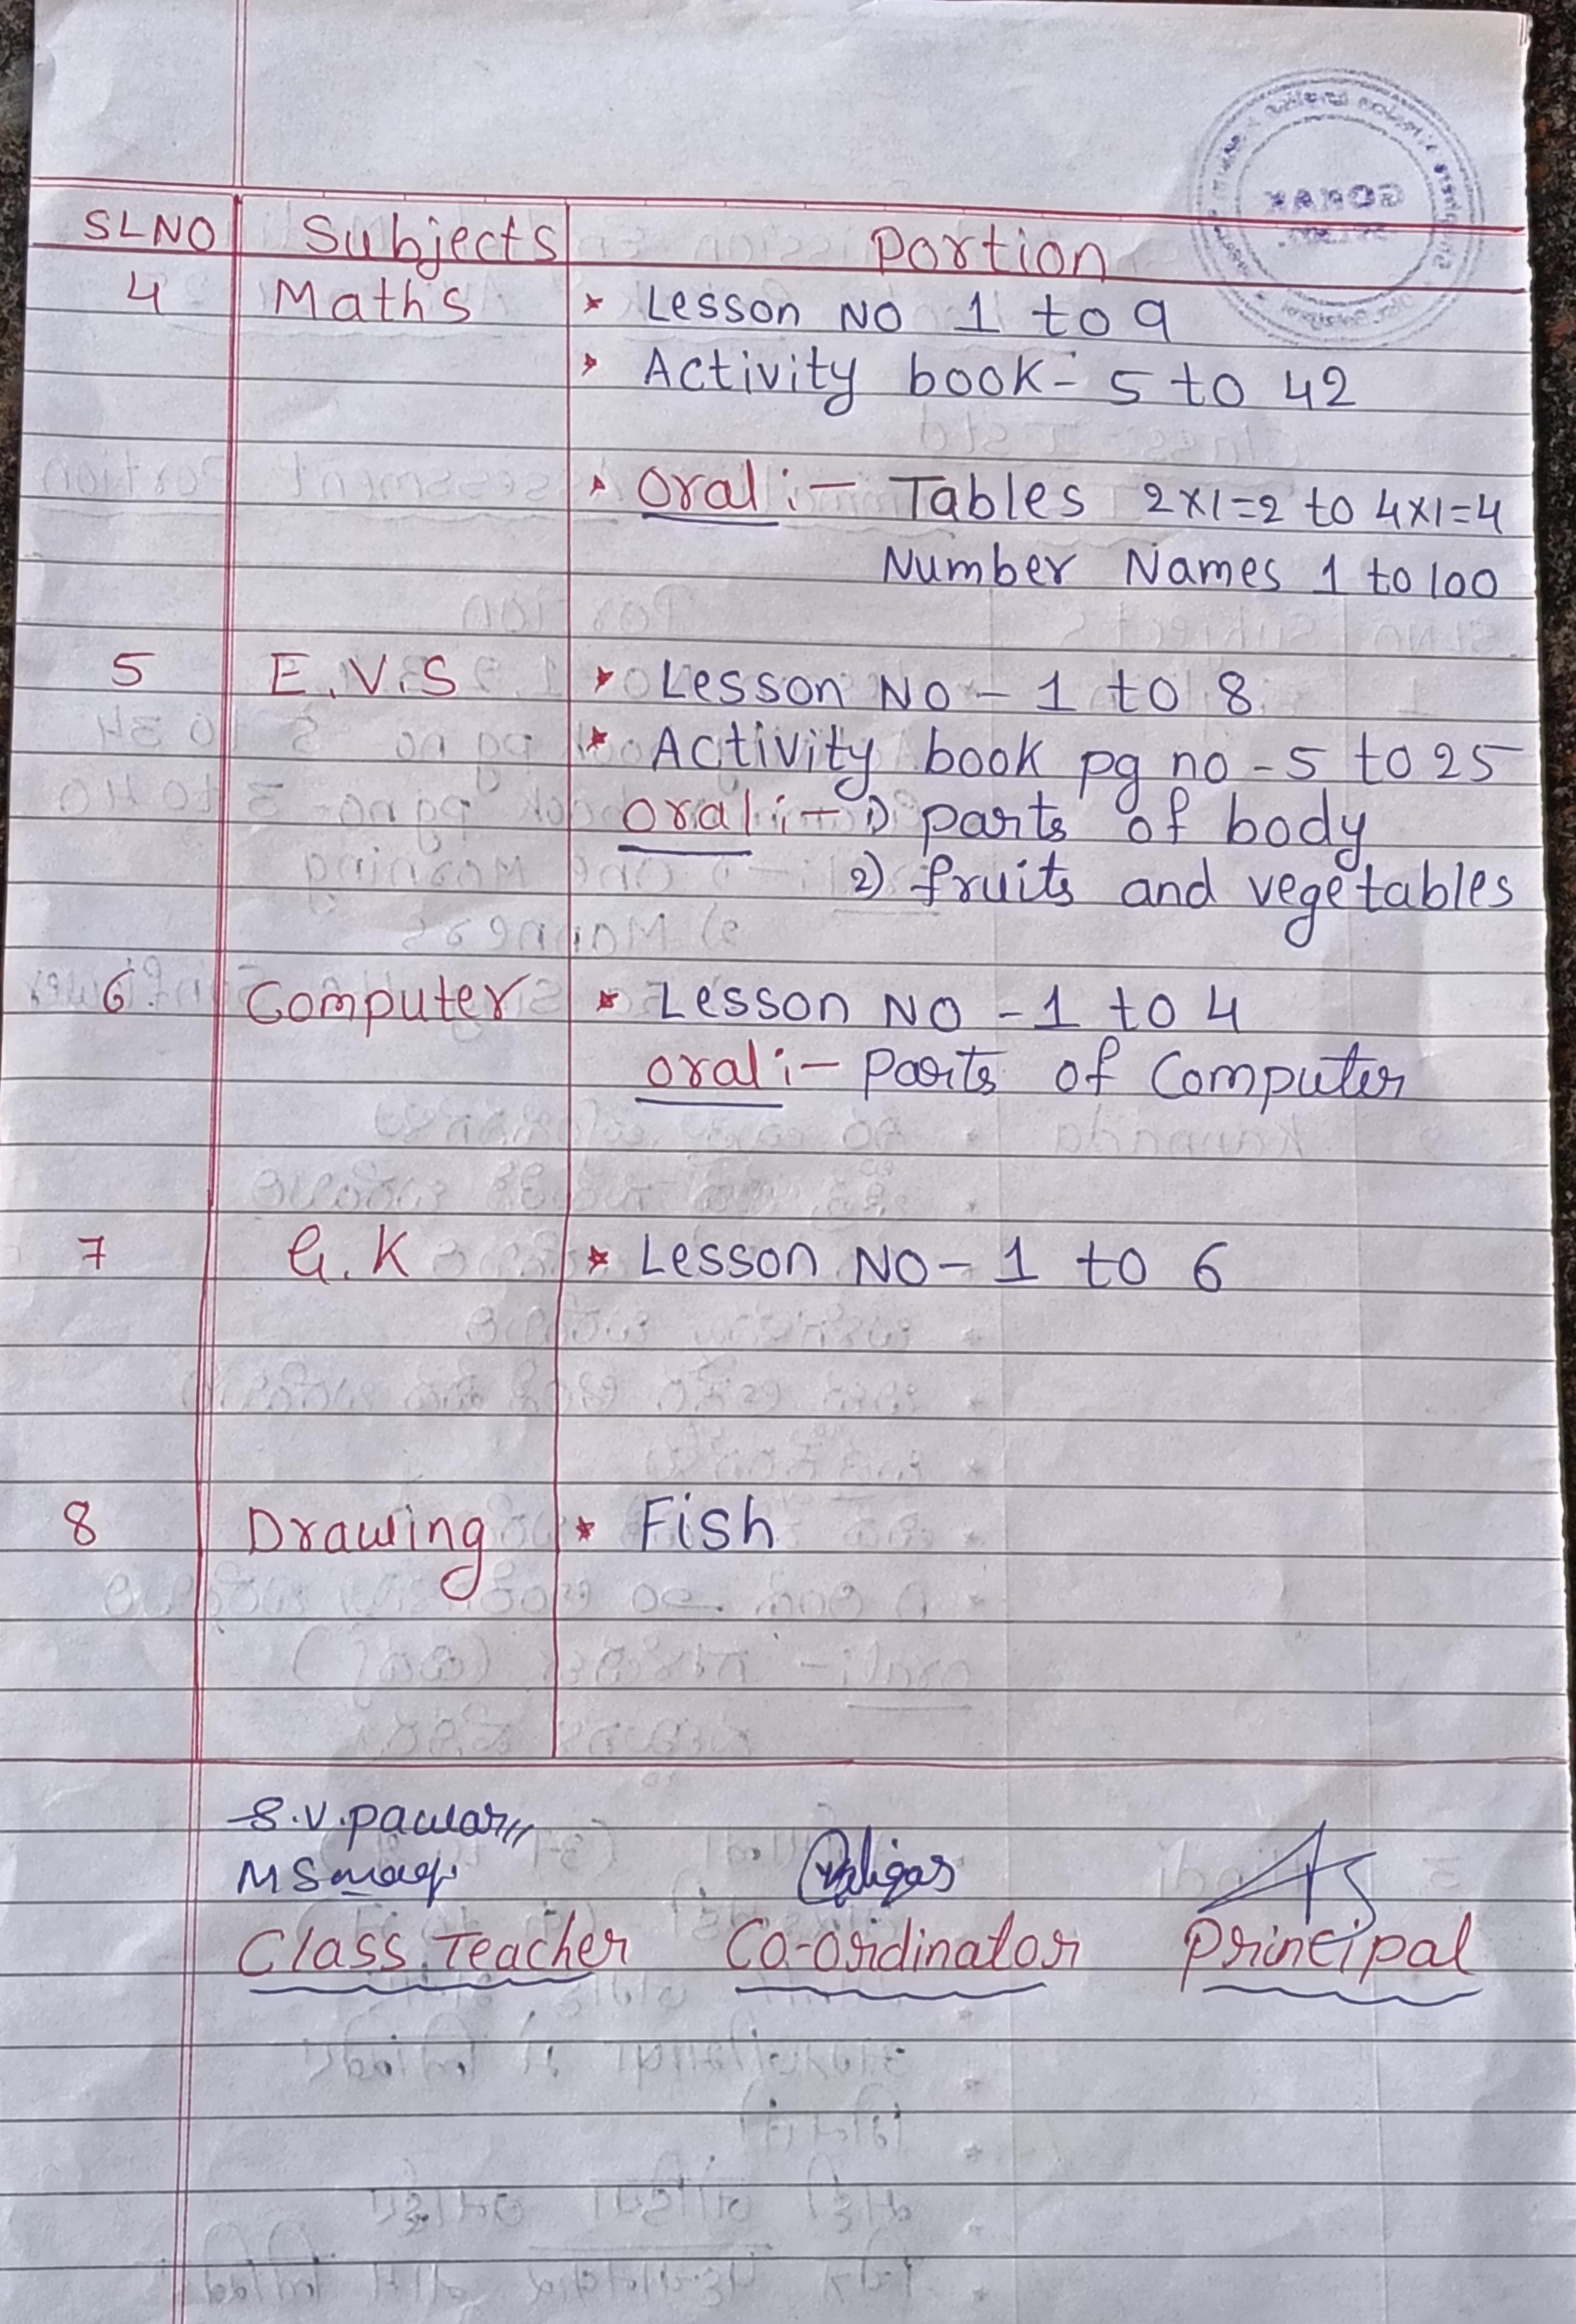 SLNO Subjects Portion
4 Maths * Lesson NO 1 to 9
* Activity book - 5 to 42
* Oral :- Tables 2x1=2 to 4x1=4
Number Names 1 to 100
5 E.V.S * Lesson NO - 1 to 8
* Activity book pg no - 5 to 25
Oral :- 1) parts of body
2) fruits and vegetables
6 Computer * Lesson NO - 1 to 4
Oral :- Parts of Computer
7 G.K * Lesson NO - 1 to 6
8 Drawing * Fish
S.V.Pawar
Class Teacher Co-ordinator Principal